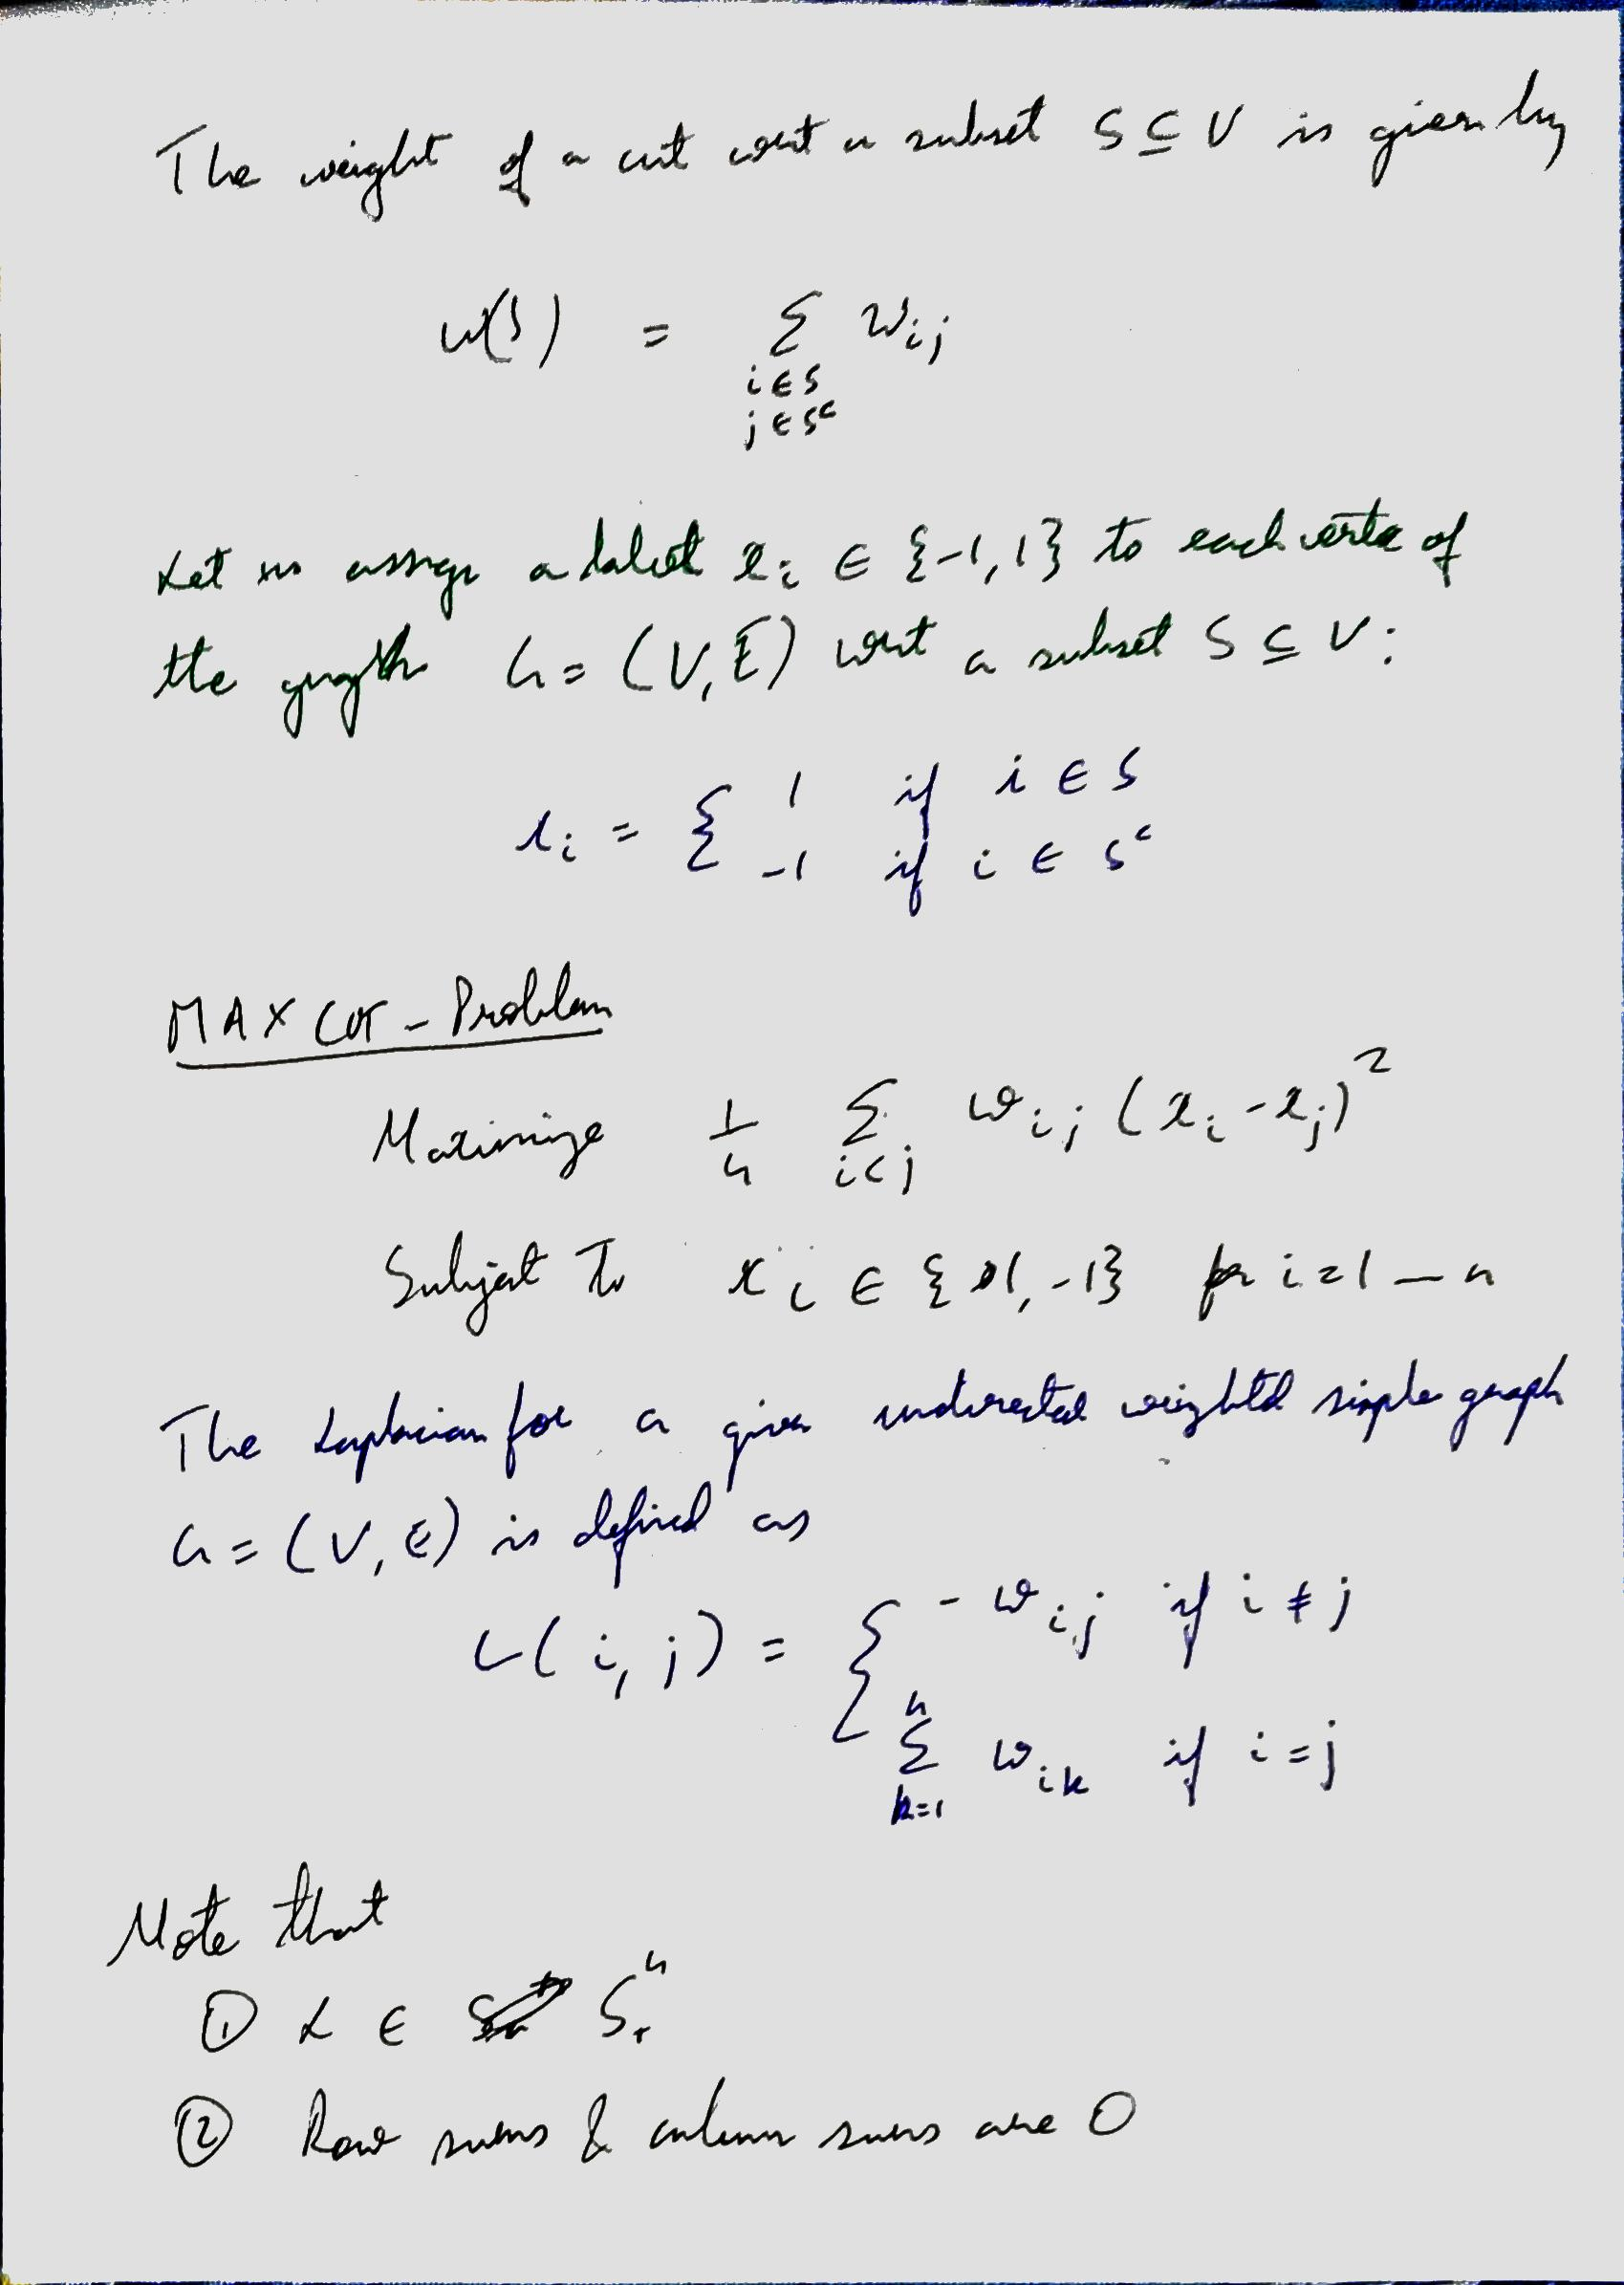 The weight of a cut wrt a subset S ⊆ V is given by
w(S) = Σ wij
i ∈ S
j ∈ Sᶜ
Let us assign a label xi ∈ {-1, 1} to each vertex of
the graph G = (V, E) wrt a subset S ⊆ V:
xi = { 1 if i ∈ S
-1 if i ∈ Sᶜ
MAX CUT - Problem
Maximize 1/4 Σ i<j wij (xi - xj)²
Subject To xi ∈ {1, -1} for i = 1 — n
The Laplacian for a given undirected weighted simple graph
G = (V, E) is defined as
L(i, j) = { - wij if i ≠ j
n Σ k=1 wik if i = j
Note that
① L ∈ S₊ⁿ
② Row sums & column sums are 0